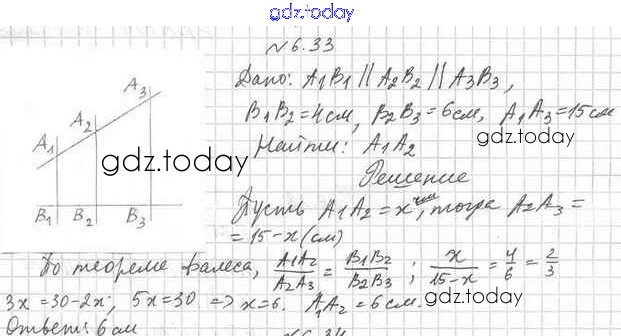 gdz.today
№6.33
Дано: A1B1 || A2B2 || A3B3,
B1B2=4см, B2B3=6см, A1A3=15см
Найти: A1A2
Решение
Пусть A1A2=x см, тогда A2A3=
=15-x(см)
По теореме Фалеса, A1A2/A2A3 = B1B2/B2B3 ; x/15-x = 4/6 = 2/3
3x=30-2x; 5x=30 => x=6. A1A2=6см.
Ответ: 6см
№6.34
A1 A2 A3
B1 B2 B3
gdz.today
gdz.today
gdz.today